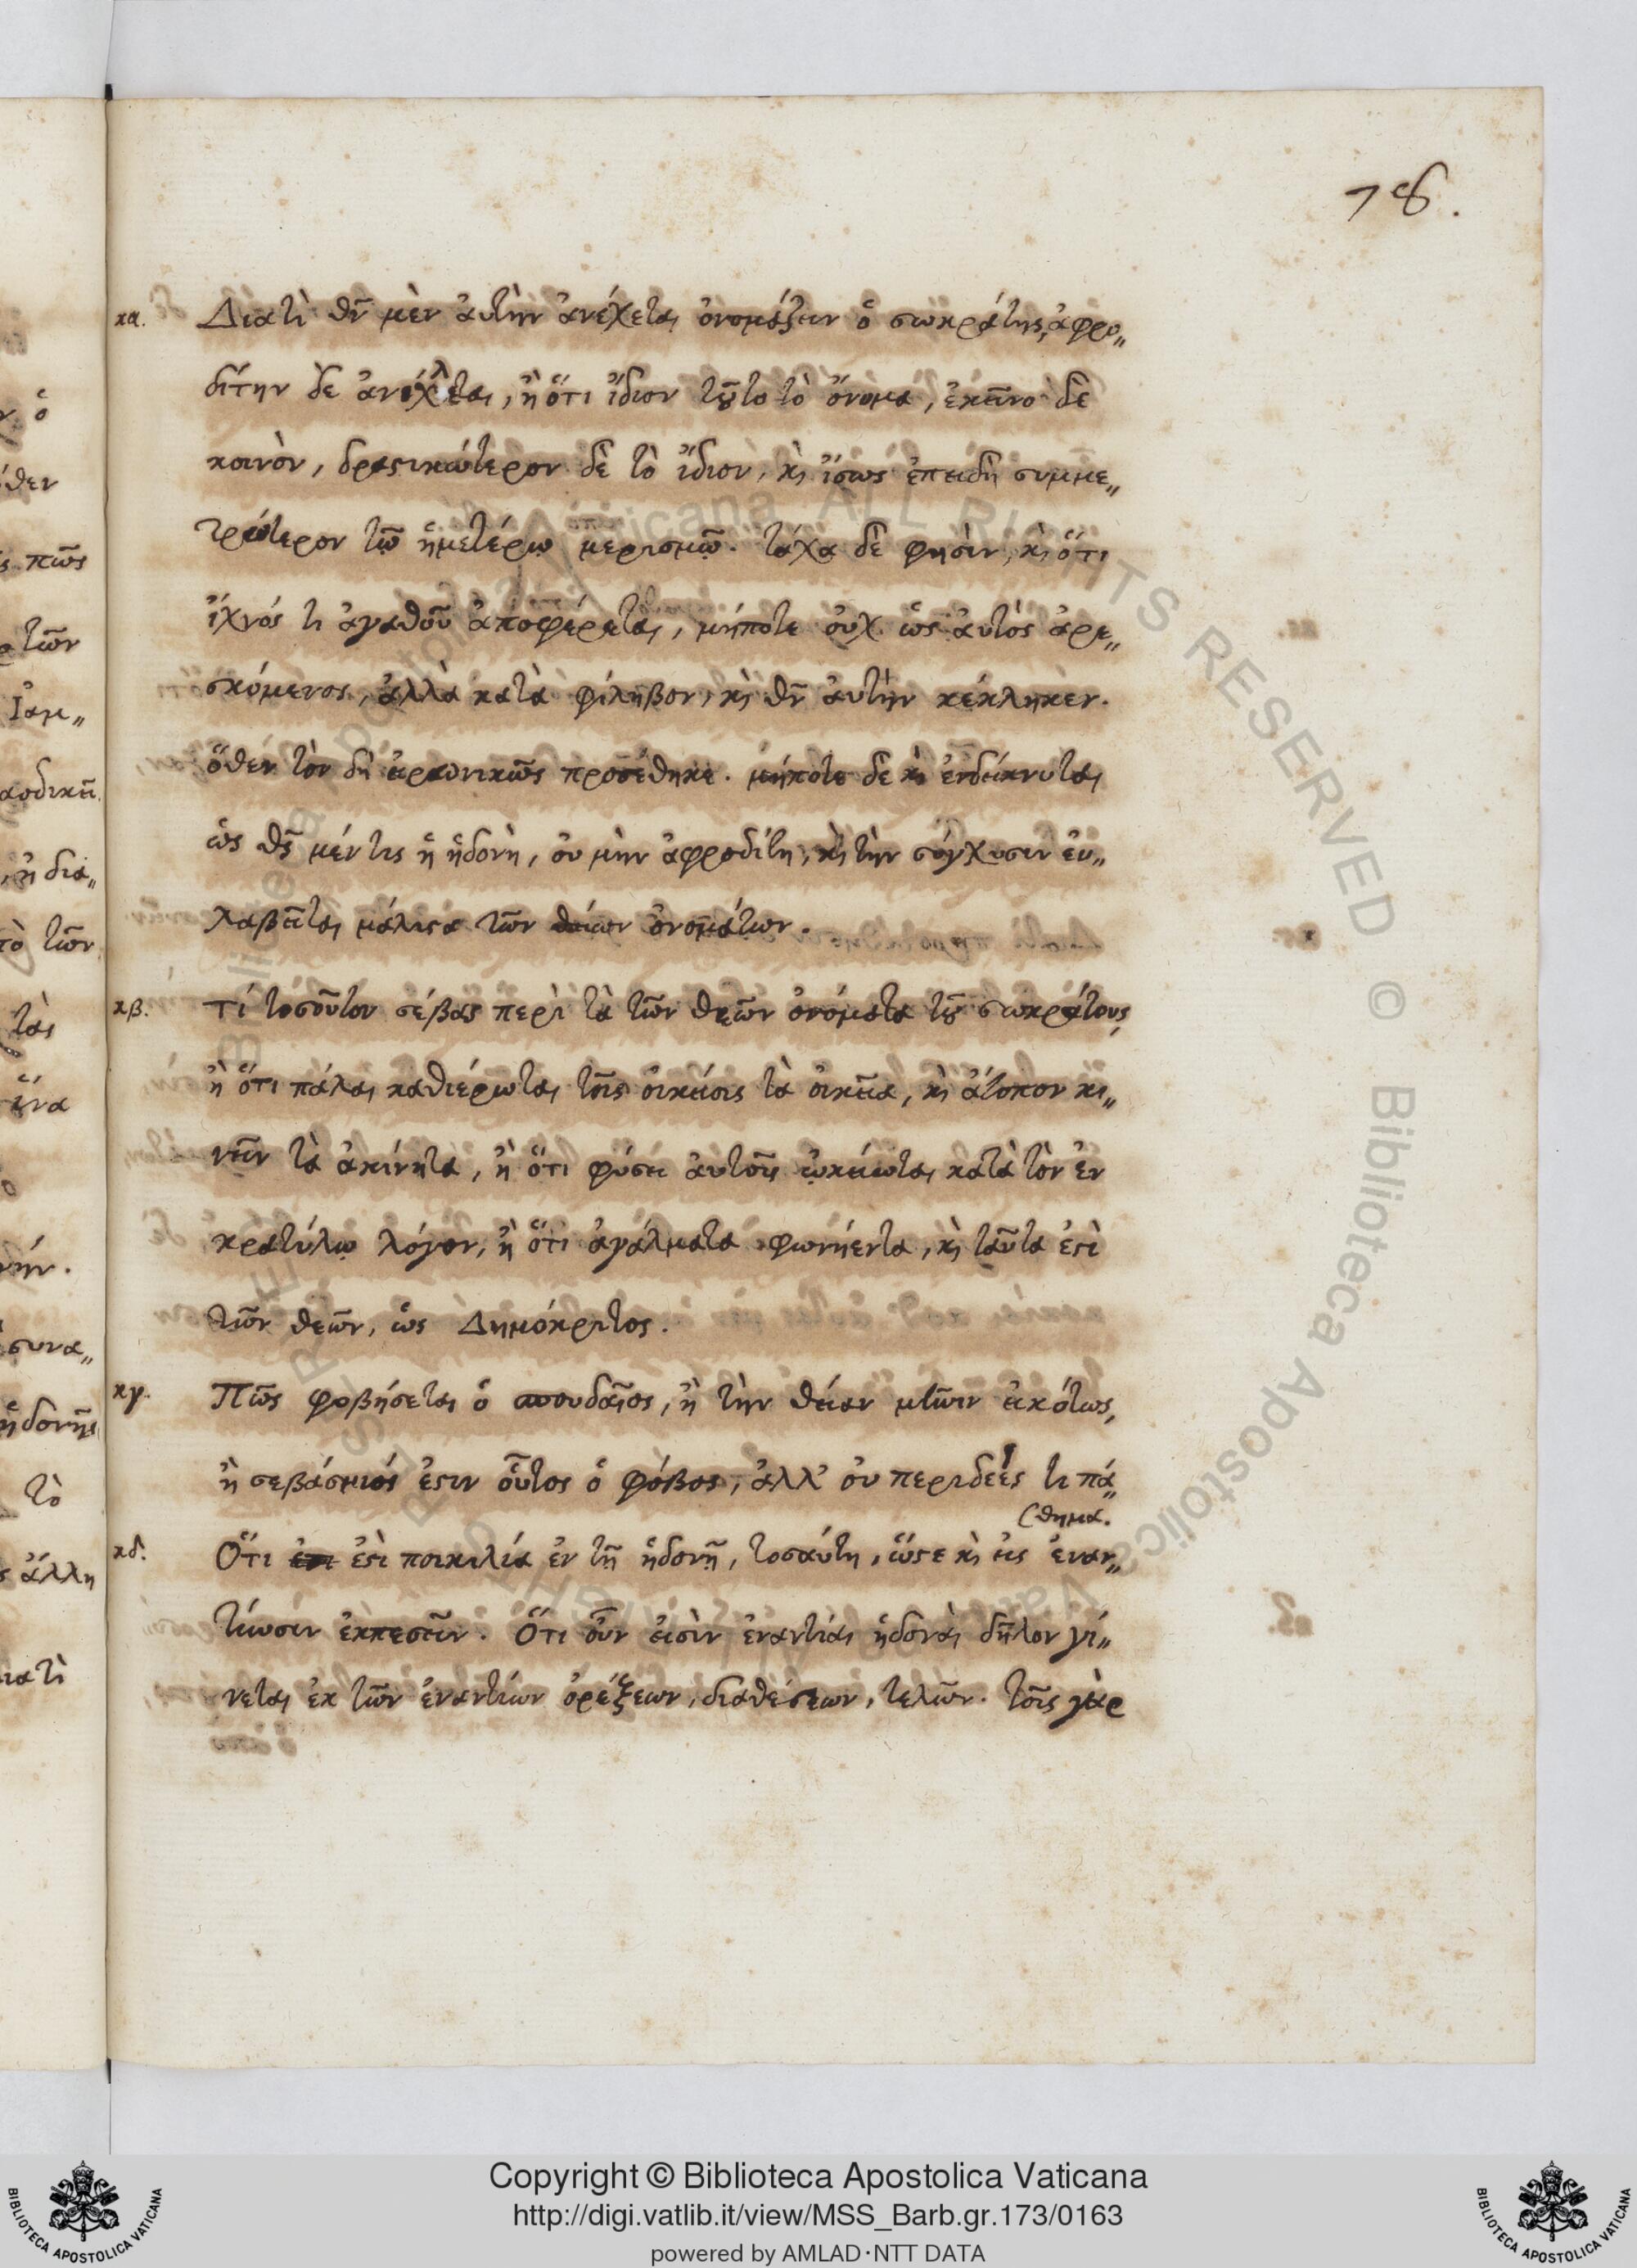 78.
κα. Διατὶ θν̃ μὲν ἀυτὴν ἀνέχεται ὀνομάζειν ὁ σωκράτης, ἀφρο„
δίτην δὲ ἀνέχεται, ἢ ὅτι ἴδιον τȣ͂το τὸ ὄνομα, ἐκεῖνο δὲ
κοινὸν, δραϛικώτερον δὲ τὸ ἴδιον, κ̀ ἴσως ἐπειδὴ συμμε„
τρότερον τῶ ἡμετέρῳ μερισμῶ. τάχα δὲ φησὶν, κ̀ ὅτι
ἴχνός τι ἀγαθοῦ ἀποφέρεται, μήποτε οὐχ ὡς ἀυτὸς ἀρε„
σκόμενος, ἀλλὰ κατὰ φίληβον, κ̀ θν̃ ἀυτὴν κέκληκεν.
ὅθεν τὸν δὴ προσέθηκε. μήποτε δὲ κ̀ ἐνδείκνυται
ὡς θς̃ μέν τις ἡ ἡδονὴ, ὀυ μὴν ἀφροδίτη, κ̀ τὴν σύγχυσιν ἐυ„
λαβεῖται μάλιϛα τῶν θείων ὀνομάτων.
κβ. Τί τοσοῦτον σέβας περὶ τὰ τῶν θεῶν ὀνόματα τȣ͂ σωκράτους,
ἢ ὅτι πάλαι καθιέρωται τοῖς ὀικείοις τὰ ὀικεῖα, κ̀ ἄτοπον κι„
νεῖν τὰ ἀκίνητα, ἢ ὅτι φύσει ἀυτοῖς ὠκείωται κατὰ τὸν ἐν
κρατύλῳ λόγον, ἢ ὅτι ἀγάλματα φωνήεντα, κ̀ ταῦτα ἐϛὶ
τῶν θεῶν, ὡς Δημόκριτος.
κγ. Πῶς φοβήσεται ὁ σπουδαῖος, ἢ τὴν θείαν μῆνιν ἐικότως,
ἢ σεβάσμιός ἐϛιν οὗτος ὁ φόβος, ἀλλ' ὀυ περιδεές τι πά„
(θημα.
κδ. Ὅτι ἐϛὶ ποικιλία ἐν τῇ ἡδονῇ, τοσαύτη, ὥϛε κ̀ εἰς ἐναν„
τίωσιν ἐκπεσεῖν. Ὅτι οὖν ἐισὶν ἐναντίαι ἡδοναὶ δῆλον γί„
νεται ἐκ τῶν ἐναντίων ὀρέξεων, διαθέσεων, τελῶν. τοῖς γὰρ
Copyright © Biblioteca Apostolica Vaticana
http://digi.vatlib.it/view/MSS_Barb.gr.173/0163
powered by AMLAD·NTT DATA